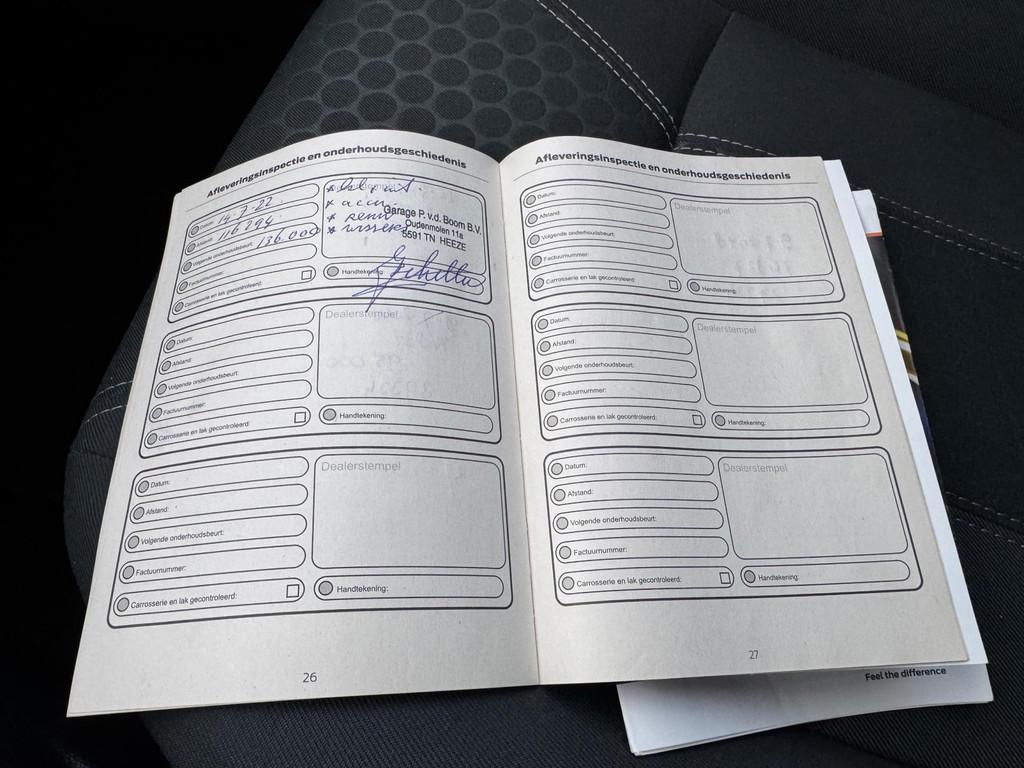 Afleveringsinspectie en onderhoudsgeschiedenis
Datum: 14-7-22
Afstand: 116.294
Volgende onderhoudsbeurt: 136.000
Factuurnummer:
Carrosserie en lak gecontroleerd:
* accu
Garage P. v.d. Boom B.V.
Oudenmolen 11a
5591 TN HEEZE
Handtekening:
Datum:
Afstand:
Volgende onderhoudsbeurt:
Factuurnummer:
Carrosserie en lak gecontroleerd:
Dealerstempel
Handtekening:
Datum:
Afstand:
Volgende onderhoudsbeurt:
Factuurnummer:
Carrosserie en lak gecontroleerd:
Dealerstempel
Handtekening:
26
Afleveringsinspectie en onderhoudsgeschiedenis
Datum:
Afstand:
Volgende onderhoudsbeurt:
Factuurnummer:
Carrosserie en lak gecontroleerd:
Dealerstempel
Handtekening:
Datum:
Afstand:
Volgende onderhoudsbeurt:
Factuurnummer:
Carrosserie en lak gecontroleerd:
Dealerstempel
Handtekening:
Datum:
Afstand:
Volgende onderhoudsbeurt:
Factuurnummer:
Carrosserie en lak gecontroleerd:
Dealerstempel
Handtekening:
27
Feel the difference